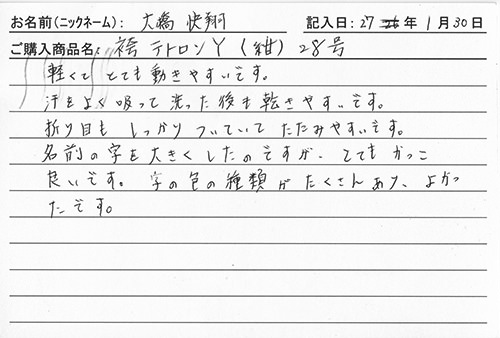 お名前(ニックネーム): 大橋 快翔 記入日: 27 年 1月30日
ご購入商品名: 袴 テトロンY (紺) 28号
軽くて とても動きやすいです。
汗をよく吸って洗った後も乾きやすいです。
折り目も しっかり ついていて たたみやすいです。
名前の字を大きくしたのですが、とても かっこ
良いです。字の色の種類が たくさんあり、よかっ
たです。